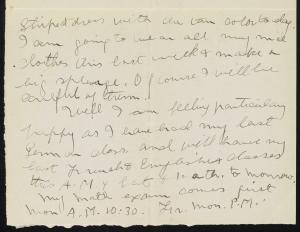 Striped dress with an tan color today.
I am going to wear all my mad
clothes this last week & make a
big splurge. Of course I will be
careful of them.
Well I am feeling particularly
happy as I have had my last
German class and will have my
last French & English classes
this A.M. & last to-morrow.
My math exam comes first
Mon A.M. 10:30. Fr. Mon. P.M.